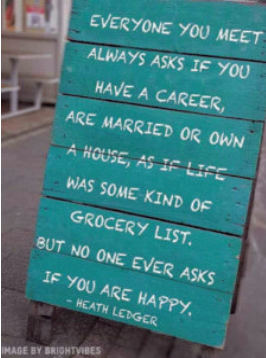 EVERYONE YOU MEET
ALWAYS ASKS IF YOU
HAVE A CAREER,
ARE MARRIED OR OWN
A HOUSE, AS IF LIFE
WAS SOME KIND OF
GROCERY LIST.
BUT NO ONE EVER ASKS
IF YOU ARE HAPPY.
- HEATH LEDGER
IMAGE BY BRIGHTVIBES